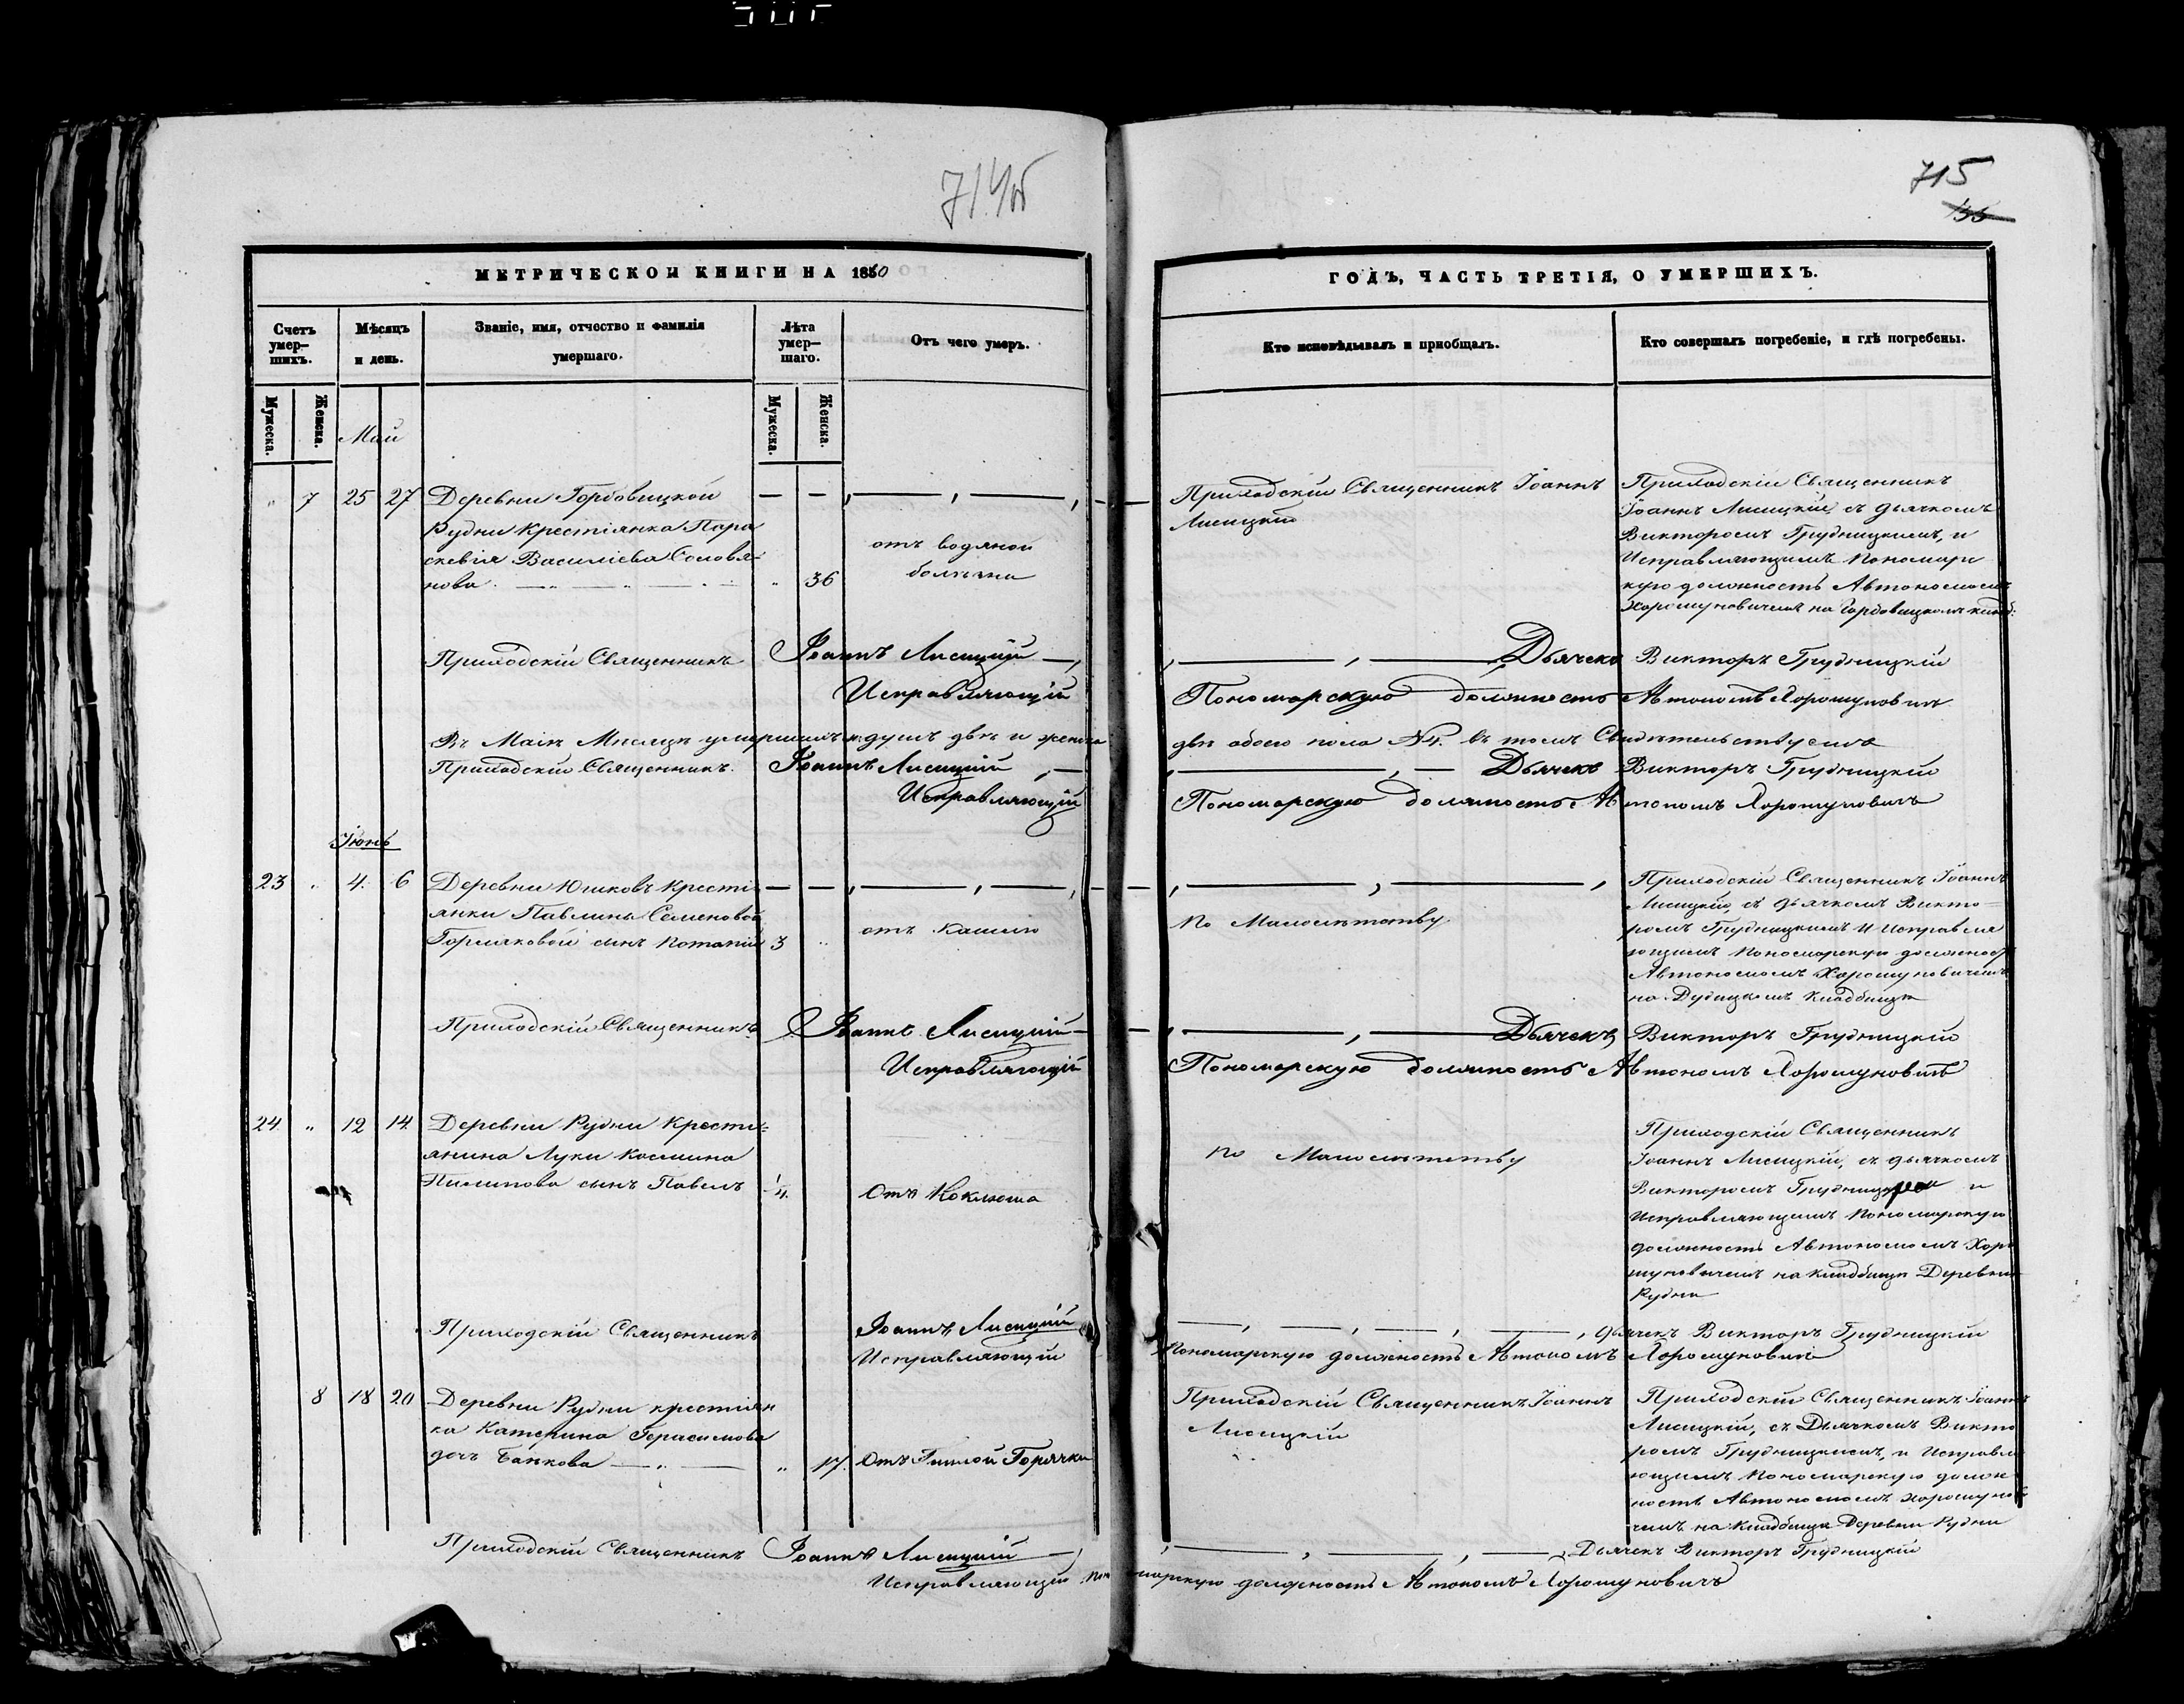 714об
715
МЕТРИЧЕСКОЙ КНИГИ НА 1860
ГОДЪ, ЧАСТЬ ТРЕТІЯ, О УМЕРШИХЪ.
Счетъ умер-шихъ.
Мѣсяцъ и день.
Званіе, имя, отчество и фамилія умершаго.
Лѣта умер-шаго.
Отъ чего умеръ.
Кто исповѣдывалъ и приобщалъ.
Кто совершалъ погребеніе, и гдѣ погребены.
Мужеска.
Женска.
Мужеска.
Женска.
Май
" 7 25 27
Деревни Горбовицкой
Рудни Крестіянка Пара
скевія Василіева Соловя-
нова
" 36
отъ водяной
болѣзни
Приходскій Священникъ Іоаннъ
Лисицкій
Приходскій Священникъ
Іоаннъ Лисицкій, съ дьячкомъ
Викторомъ Грудницкимъ, и
Исправляющимъ Пономарс
кую должность Автономомъ
Хорошуновичемъ на Горбовицкомъ кладб:
Приходскій Священникъ Іоаннъ Лисицкій Дьячекъ Викторъ Грудницкій
Исправляющій Пономарскую должность Автономъ Хорошуновичъ
Въ Маіи Мѣсяцѣ умершихъ м. душъ двѣ и женска
двѣ обоего пола №4. въ томъ Свидѣтельствуемъ
Приходскій Священникъ Іоаннъ Лисицкій Дьячекъ Викторъ Грудницкій
Исправляющій Пономарскую должность Автономъ Хорошуновичъ
Іюнь
23 " 4. 6
Деревни Юшковъ Крестi-
янки Павлины Семеновой
Горшковой сынъ Потапій
3 "
отъ Кашлю
По Малолѣтству
Приходскій Священникъ Іоаннъ
Лисицкій, съ дьячкомъ Викто-
ромъ Грудницкимъ и исправля
ющимъ Пономарскую должность
Автономомъ Хорошуновичемъ
на Дудицкомъ Кладбищѣ
Приходскій Священникъ Іоаннъ Лисицкій Дьячекъ Викторъ Грудницкій
Исправляющій Пономарскую должность Автономъ Хорошуновичъ
24. " 12 14
Деревни Рудни Крести-
янина Луки Космина
Пилипова сынъ Павелъ
1/4.
Отъ Коклюша
По Малолѣтству
Приходскій Священникъ
Іоаннъ Лисицкій, съ дьячкомъ
Викторомъ и
Исправляющимъ Пономарскую
должность Автономомъ Хоро
шуновичемъ на кладбищѣ Деревни
Рудни
Приходскій Священникъ Іоаннъ Лисицкій дьячекъ Викторъ Грудницкій
Исправляющій Пономарскую должность Автономъ Хорошуновичъ
8 18 20
Деревни Рудни крестіян
ка Катерина Герасимова
дочь Банкова
" 17.
Отъ Гнилой Горячки
Приходскій Священникъ Іоаннъ
Лисицкій
Приходскій Священникъ Іоаннъ
Лисицкій, съ Дьячкомъ Викто
ромъ Грудницкимъ, и Исправля
ющимъ Пономарскую долж
ность Автономомъ Хорошунови
чемъ на Кладбищѣ Деревни Рудни
Приходскій Священникъ Іоаннъ Лисицкій Дьячекъ Викторъ Грудницкій
Исправляющій Пономарскую должность Автономъ Хорошуновичъ